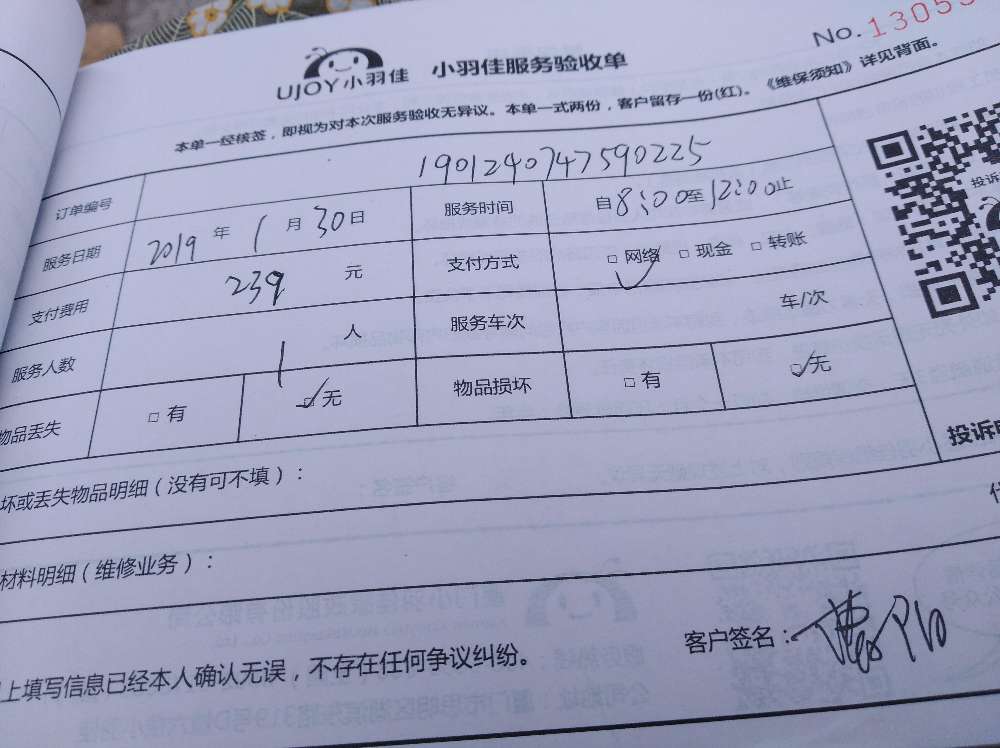 No.13055
UJOY小羽佳 小羽佳服务验收单
本单一经核签，即视为对本次服务验收无异议。本单一式两份，客户留存一份(红)。《维保须知》详见背面。
订单编号 1901240747590225
服务日期 2019 年 1 月 30 日 服务时间 自8:00至12:00止
支付费用 239 元 支付方式 □ 网络 □ 现金 □ 转账
服务人数 1 人 服务车次 车/次
物品丢失 □ 有 □ 无 物品损坏 □ 有 □ 无
投诉
投诉
坏或丢失物品明细（没有可不填）：
材料明细（维修业务）：
上填写信息已经本人确认无误，不存在任何争议纠纷。
客户签名：